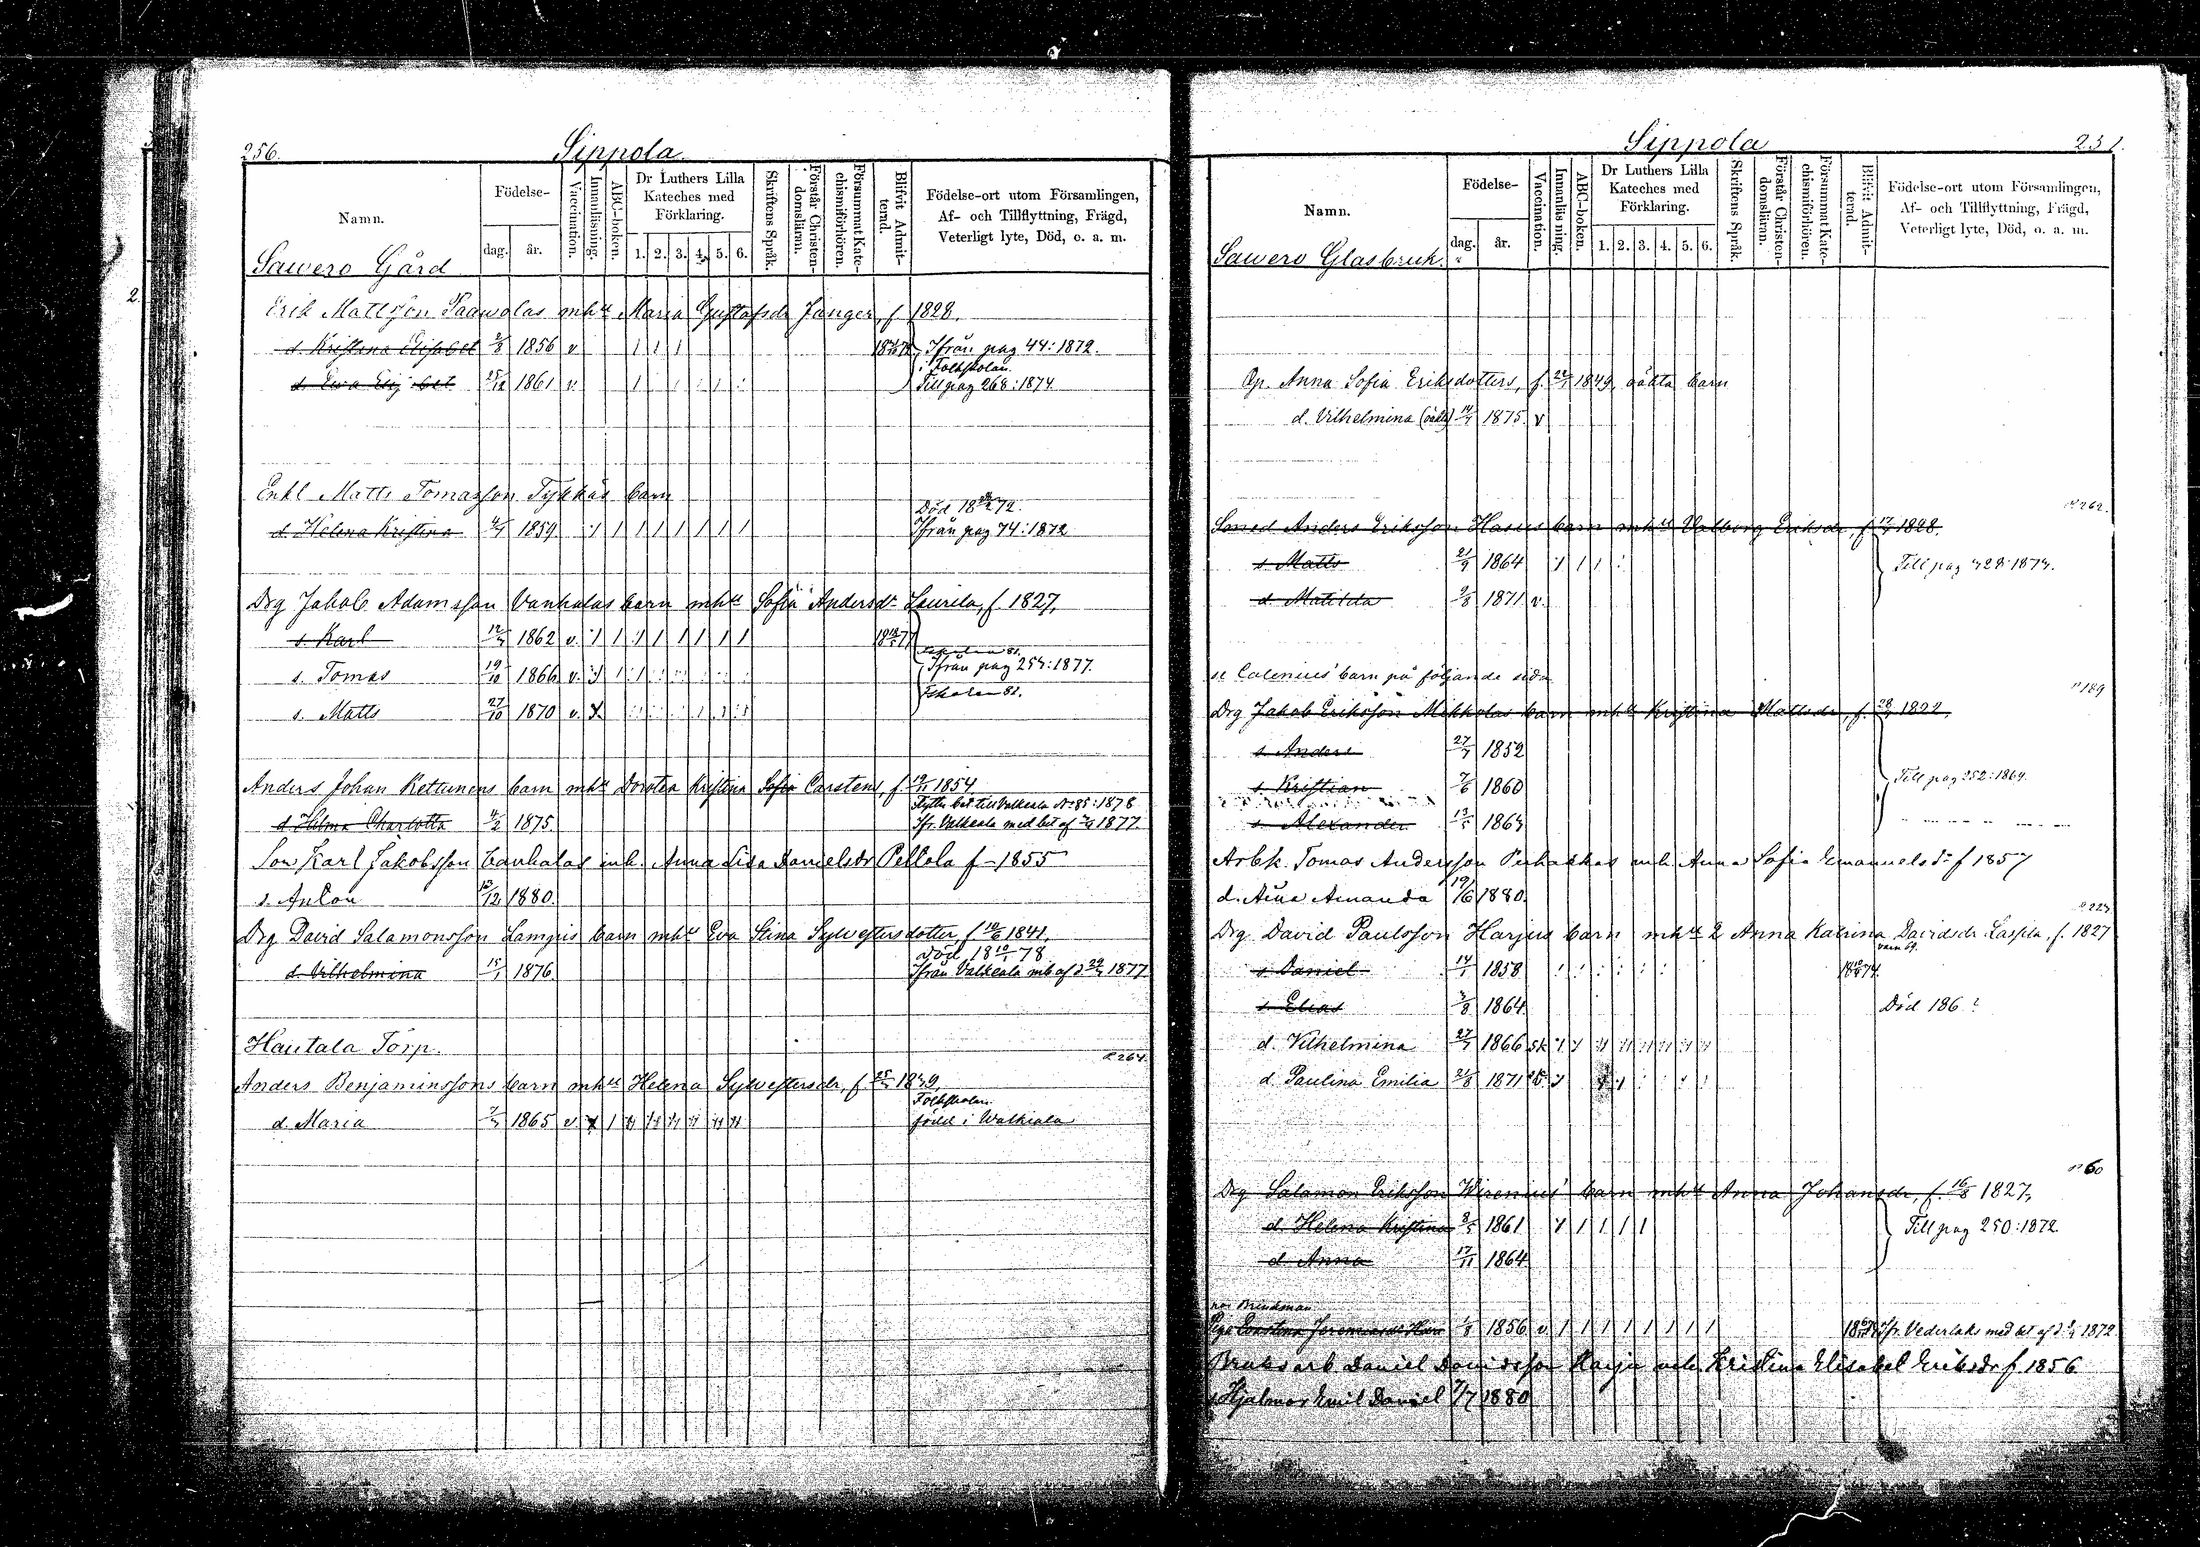 256.
Sippola.
Namn.
Födelse-
dag.
år.
Vaccination.
Innanläsning.
ABC-boken.
Dr Luthers Lilla Kateches med Förklaring.
1. 2. 3. 4. 5. 6.
Skriftens Språk.
Förstår Christendomsläran.
Försummat Katechismiförhören.
Blifvit Admitterad.
Födelse-ort utom Församlingen, Af- och Tillflyttning, Frägd, Veterligt lyte, Död, o. a. m.
Sawero Gård
Erik Mattsson Paawolas mhu Maria Gustafsdr Junger, f. 1828.
d. Kristina Elisabet 2/8 1856 v Ifrån pag 44:1872.
i Folkskolan.
d. Eva Elisabet 25/12 1861 v Till pag 268:1874.
Enkl Matts Tomasson Tykkäs barn
Död 72.
d. Helena Kristina 1859 Ifrån pag 74:1872
Drg Jakob Adamsson Vanhalas barn mhu Sofia Andersdr Laurila, f. 1827,
s. Karl 1862 v.
s. Tomas 19/10 1866 v. Ifrån pag 254:1877.
s. Matts 27/10 1870 v.
Anders Johan Kettunens barn mhu Dorotea Kristina Sofia Carstens, f. 1854
Flytte bet till Valkeala No 85:1878
d Hilma Charlotta 1875. Ifr. Valkeala med bet af 1877.
Son Karl Jakobsson Vanhalas mh. Anna Lisa Danielsdr Peltola f 1855
s. Anton 1880.
Drg David Salamonsson Lamqvis barn mhu Eva Stina Sylvestersdotter f. 1841.
Död 78
d. Vilhelmina 15/1 1876. Ifrån Valkeala mb af 1877
Hautala Torp.
P. 264.
Anders Benjaminssons barn mhu Helena Sylvestersdr, f. 1849,
Folkskolan
d. Maria 1865 v född i Walkeala
Sippola
251
Namn.
Födelse-
dag.
år.
Vaccination.
Innanläsning.
ABC-boken.
Dr Luthers Lilla Kateches med Förklaring.
1. 2. 3. 4. 5. 6.
Skriftens Språk.
Förstår Christendomsläran.
Försummat Katechismiförhören.
Blifvit Admitterad.
Födelse-ort utom Församlingen, Af- och Tillflyttning, Frägd, Veterligt lyte, Död, o. a. m.
Sawero Glasbruk.
Anna Sofia Eriksdotters, f. 1849, oäkta barn
d. Vilhelmina (oäkta) 1875. v
P. 262.
Smed Anders Eriksson Hasus barn mhu Valborg Eriksdr, f. 1828.
s. Matts 21/9 1864 Till pag 428:1874.
d. Matilda 9/8 1871 v.
se Calenius' barn på följande sida
P 189
Drg Jakob Eriksson Mikkolas barn mhu Kristina Mattsdr, f. 1822.
s. Anders 27/7 1852
s. Kristian 7/6 1860 Till pag 252:1869.
s. Alexander 13/5 1863
Arbk. Tomas Andersson Puhakkas mh Anna Sofia Emanuelsdr f 1857
d. Aina Amanda 19/6 1880.
P. 223
Drg David Paulsson Harjus barn mhu 2 Anna Katrina Davidsdr Laspila, f. 1827
s. Daniel 14/1 1858
s. Elias 3/8 1864 Död 186 ?
d. Vilhelmina 27/7 1866 sk
d. Paulina Emilia 21/8 1871
P 60
Drg Salamon Eriksson Wirenius' barn mhu Anna Johansdr, f. 16/8 1827,
d. Helena Kristina 1861 Till pag 250:1872
d. Anna 17/11 1864
Brinkman
1856 v. Ifr. Vederlaks med bet af d. 1872
Bruksarb Daniel Davidsson Harju mh. Kristina Elisabet Eriksdr f. 1856
s. Hjalmar Emil Daniel 7/7 1880